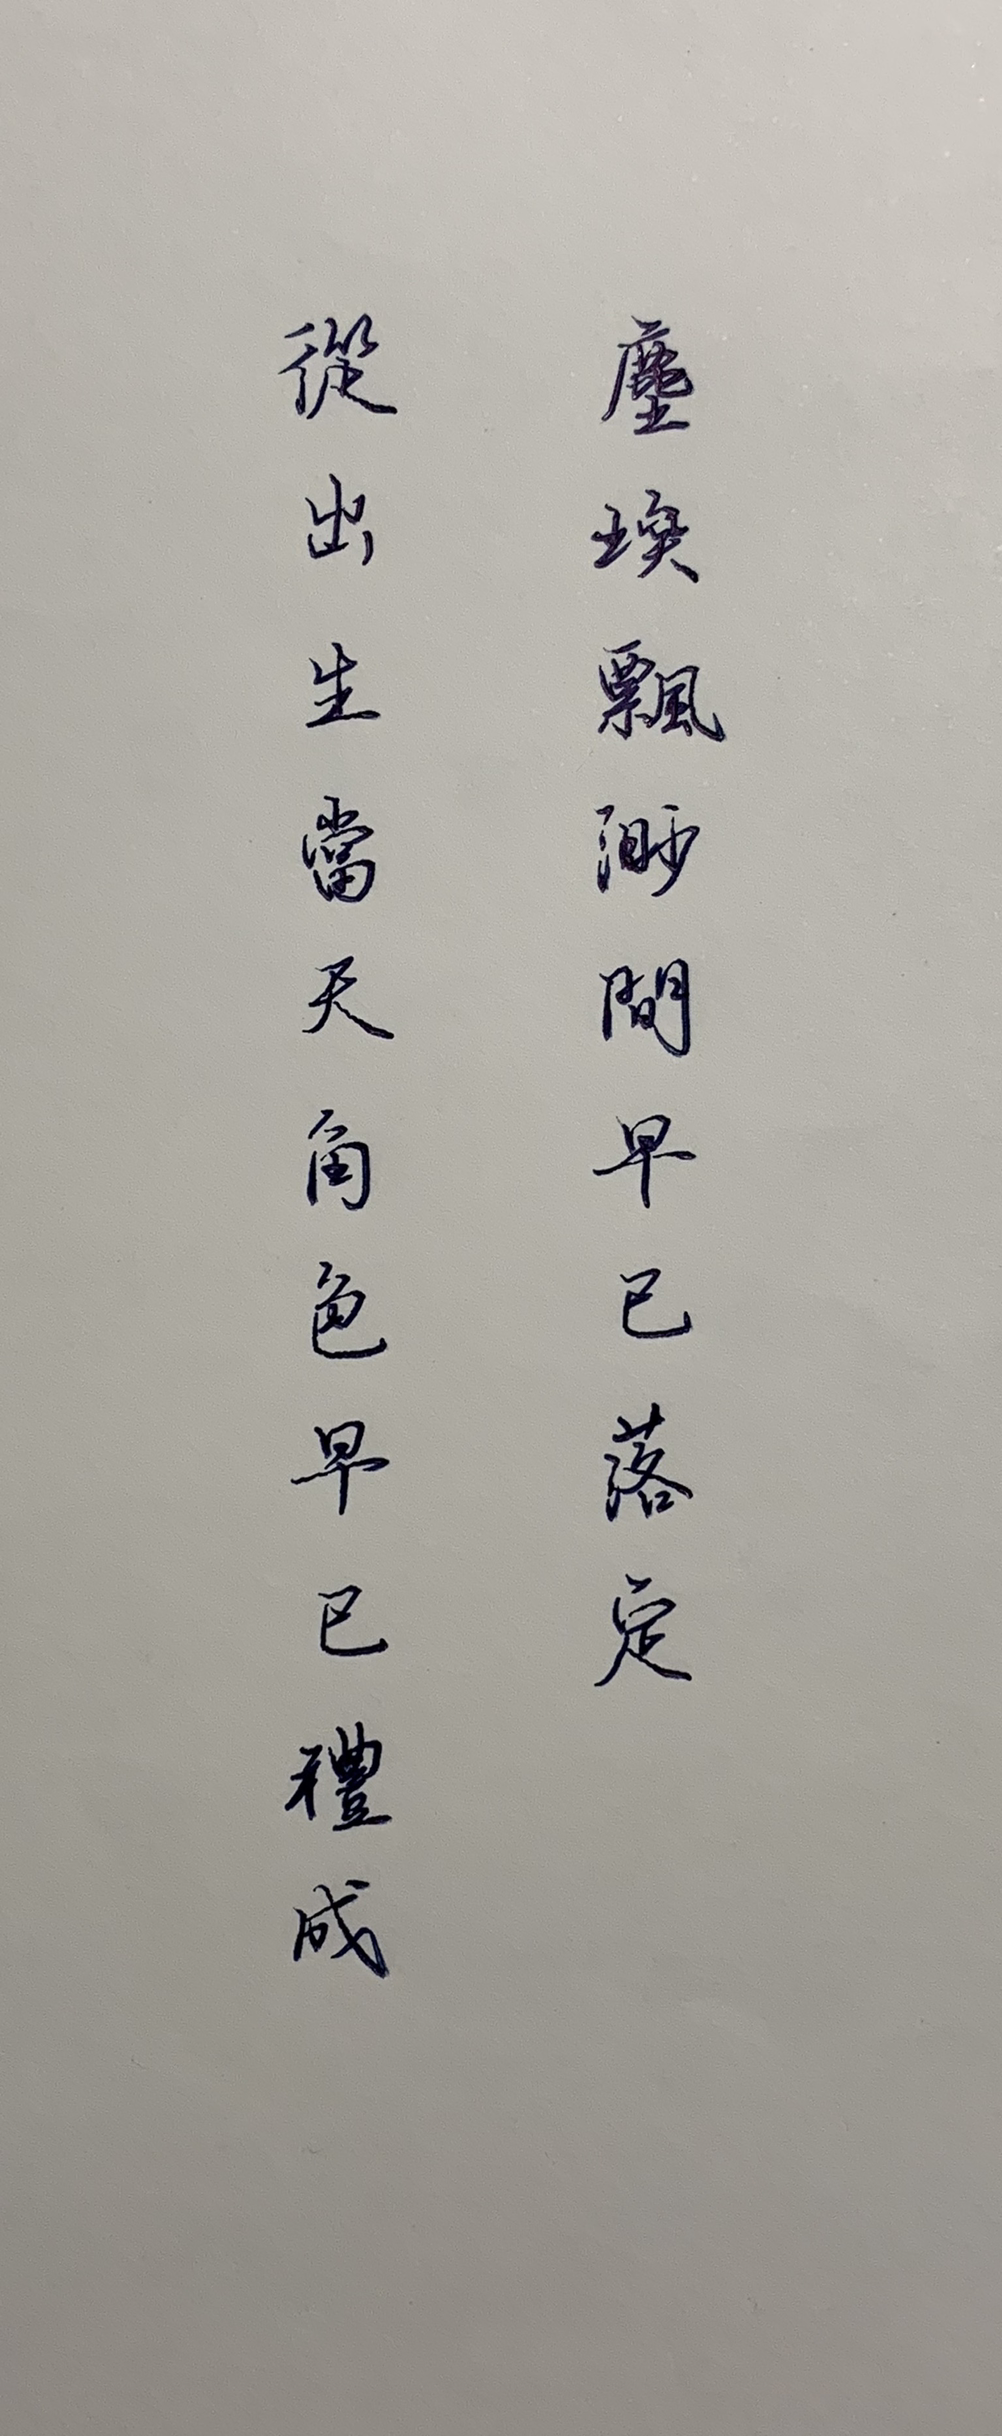 塵埃飄渺間早已落定
從出生當天角色早已禮成